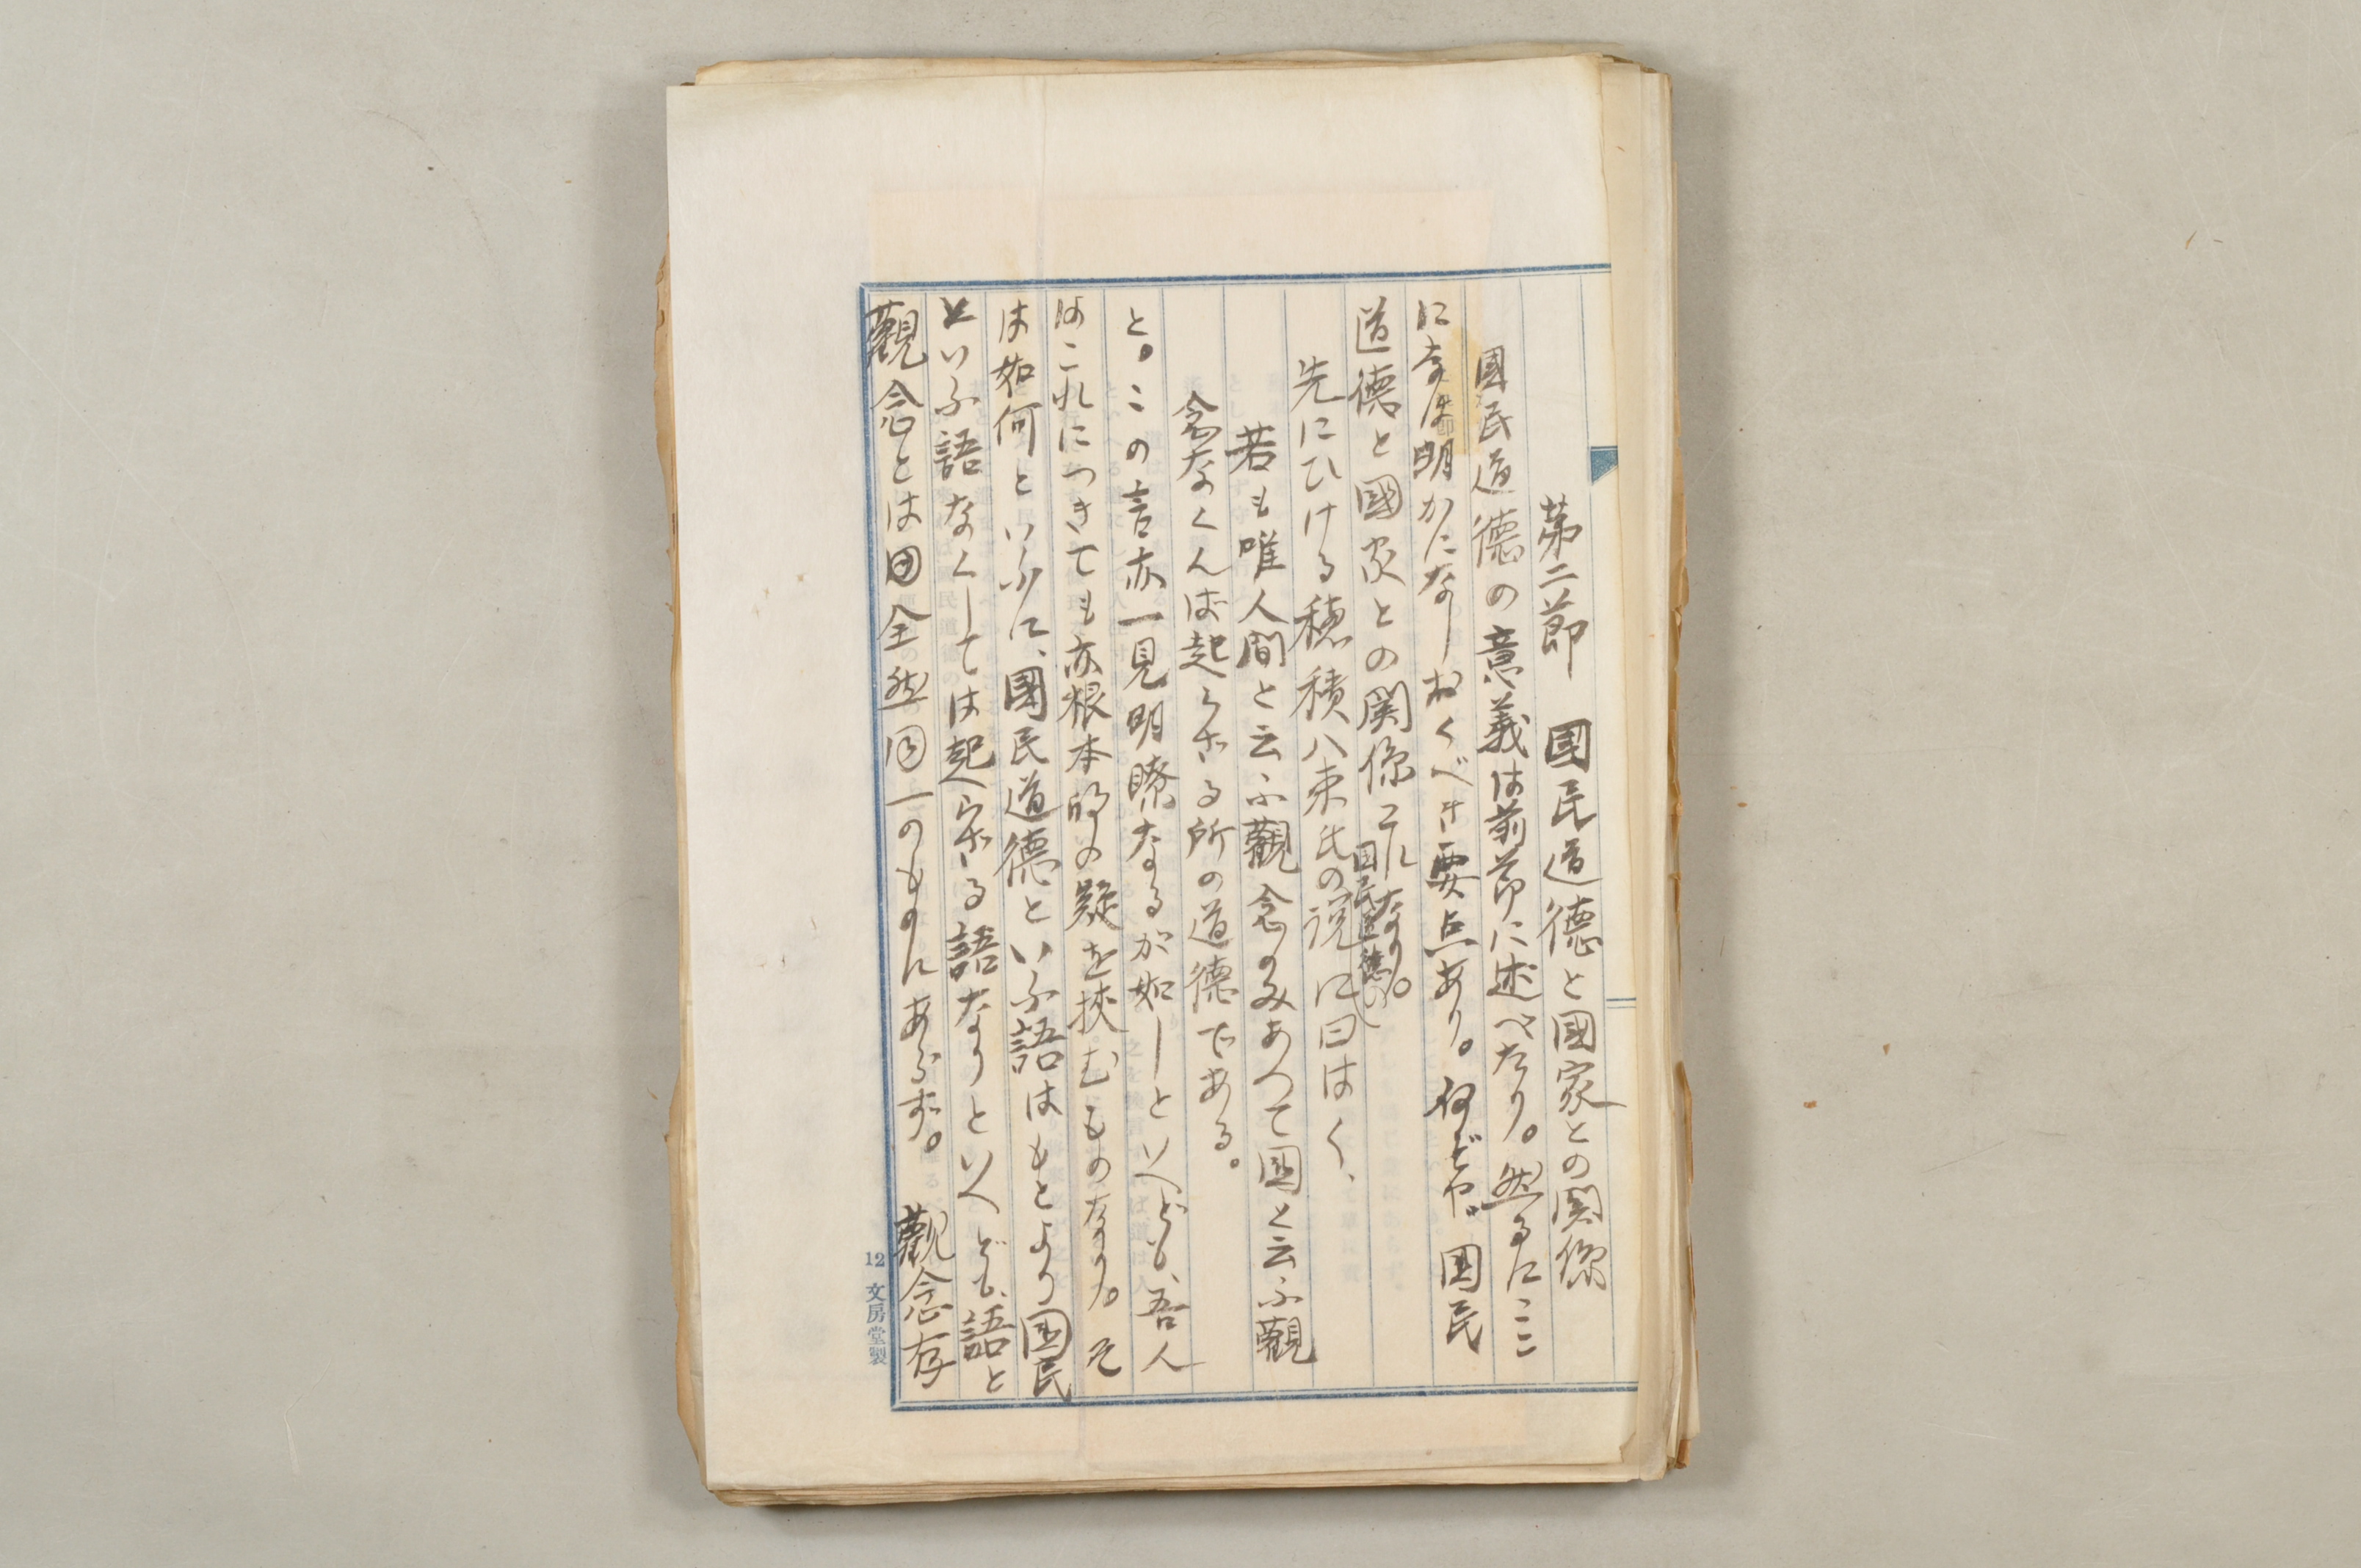 第二節　國民道德と國家との関係
國民道德の意義は前節に述べたり。然るにここ
になほ明かになしおくべき要点あり。何ぞや　国民
道德と國家との関係これなり。
国民道德の
先にひける穂積八束氏の説に曰はく、
若も唯人間と云ふ觀念のみあつて國と云ふ觀
念なくんば起らざる所の道德である。
と。この言亦一見明瞭なるが如しといへども、吾人
はこれにつきても亦根本的の疑を挾むものなり。そ
は如何といふに、國民道德といふ語はもとより国民
といふ語なくしては起らざる語なりといへども、語と
觀念とは全然同一のものにあらず。觀念存
12 文房堂製